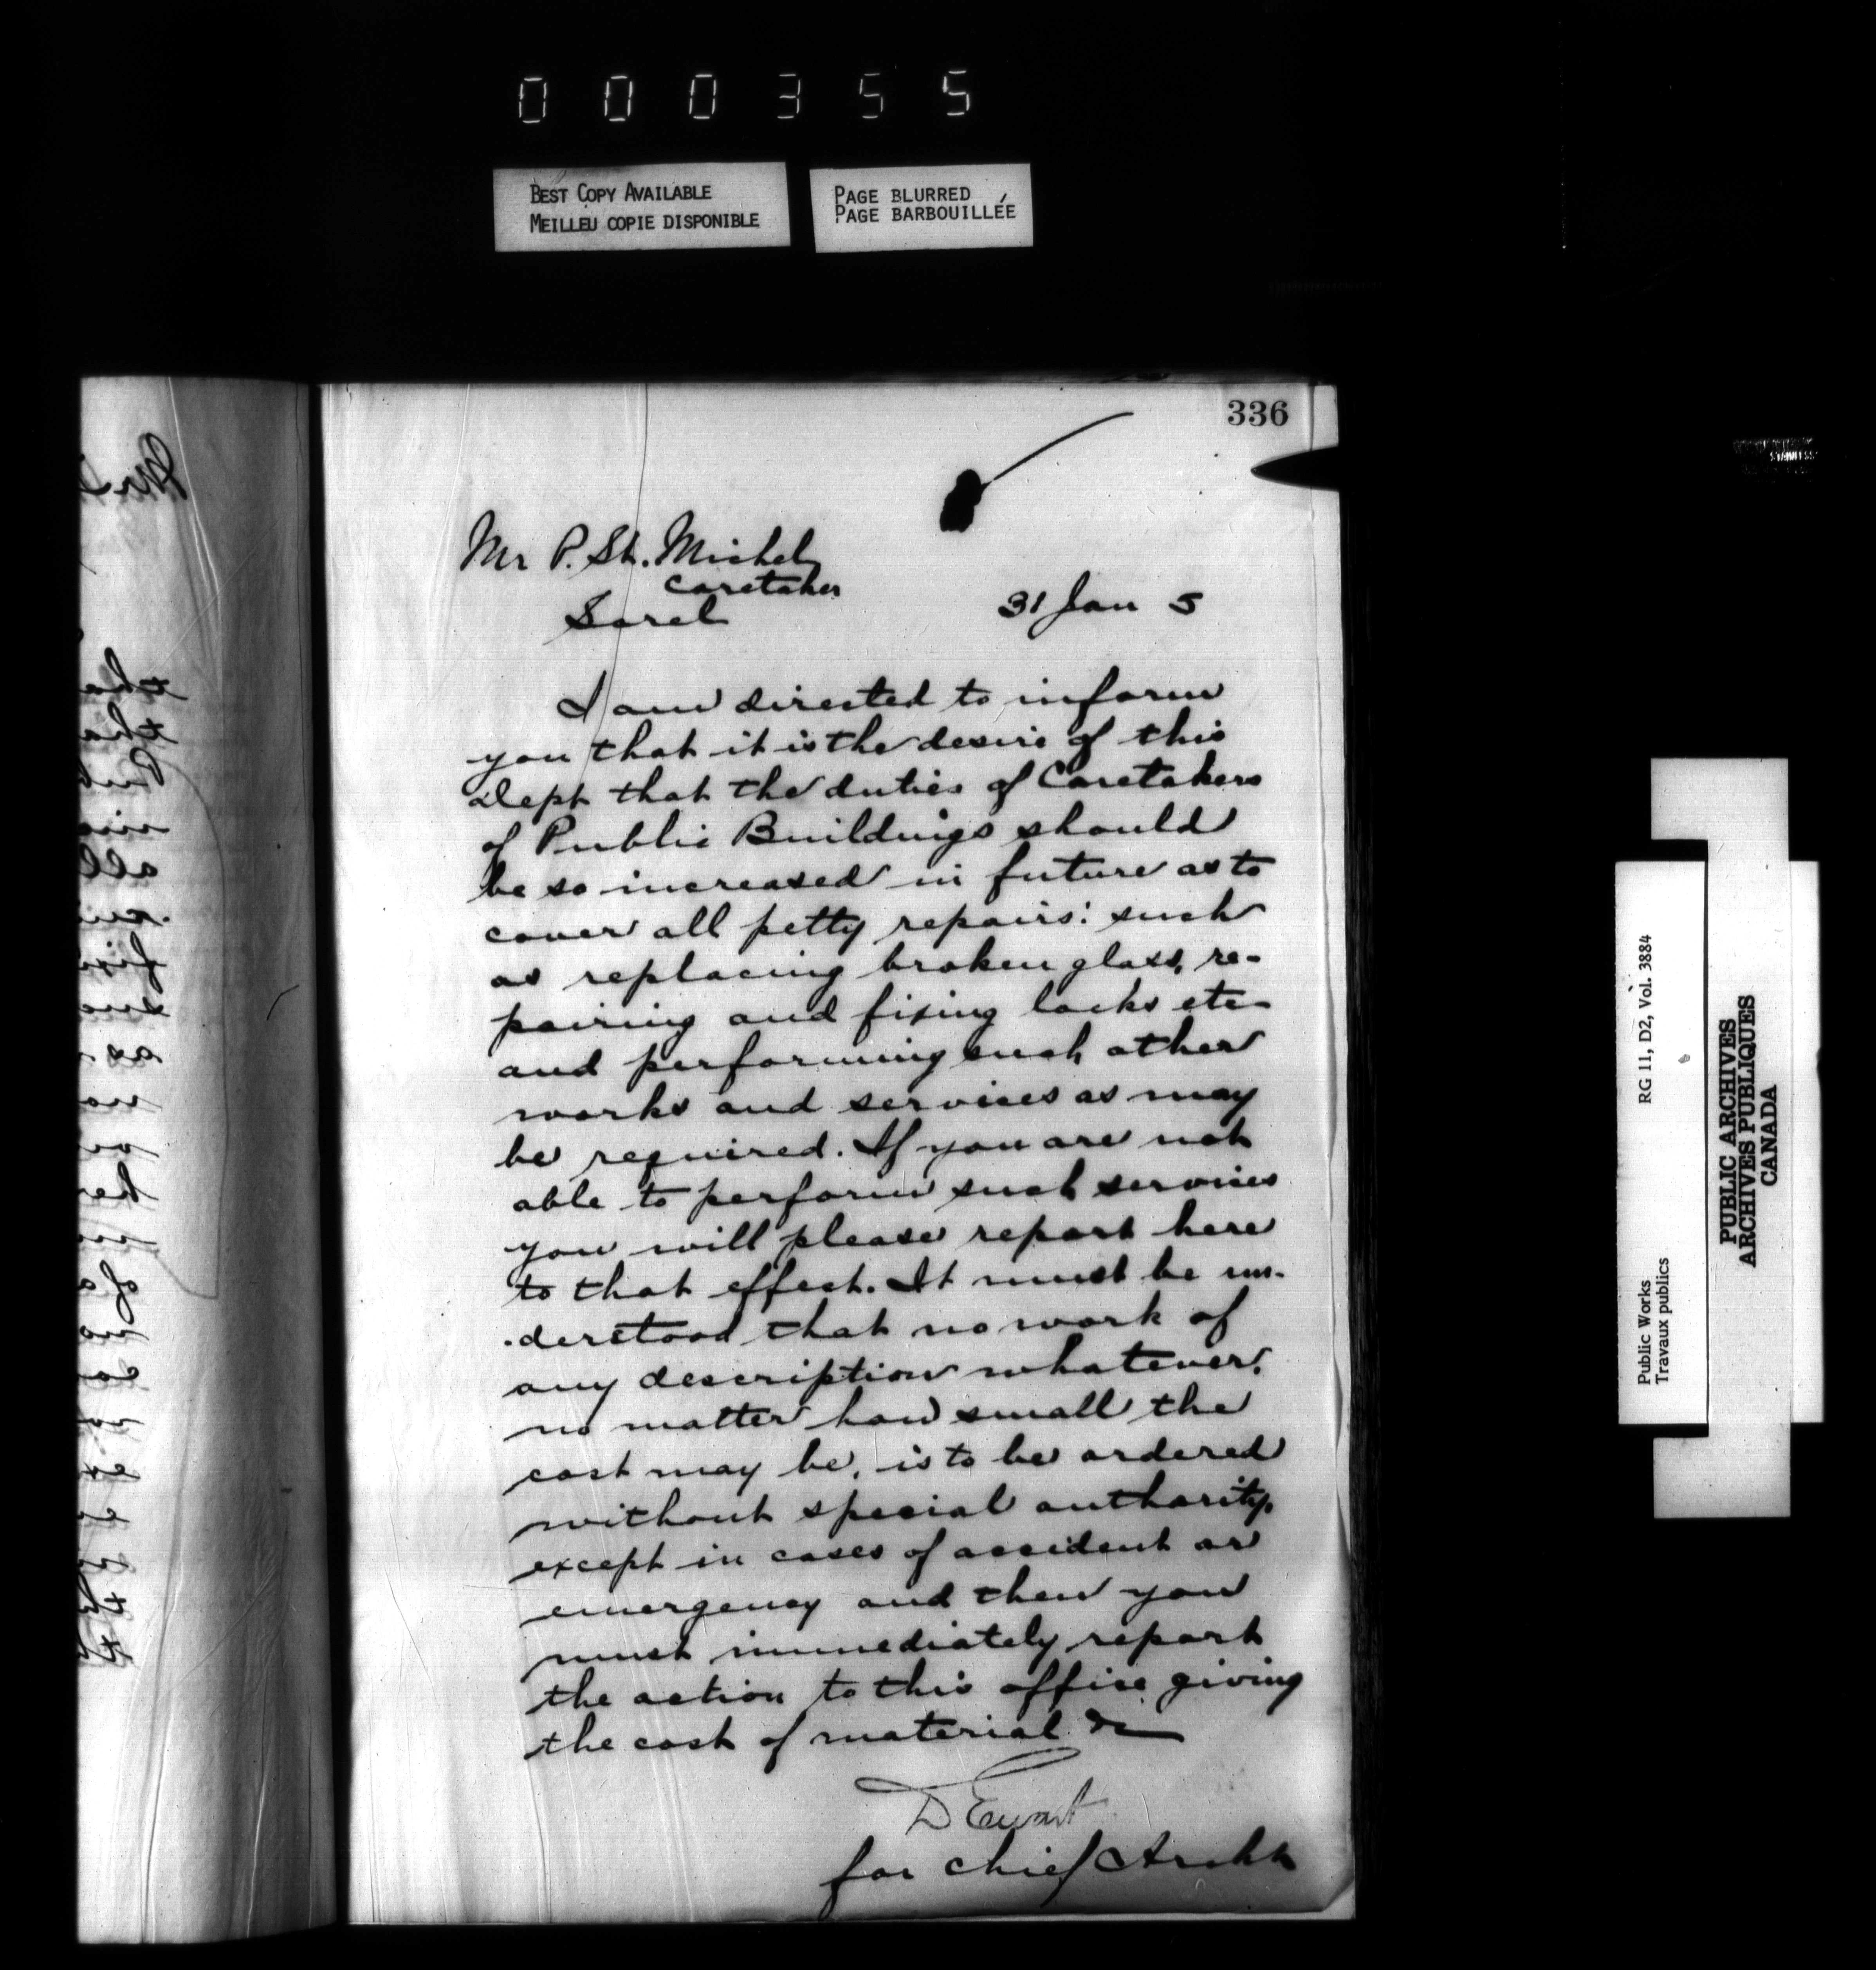 000355
BEST COPY AVAILABLE
MEILLEU COPIE DISPONIBLE
PAGE BLURRED
PAGE BARBOUILLÉE
336
Mr P. St. Michel
Caretaker
Sorel
31 Jan 5
I am directed to inform
you that it is the desire of this
Dept that the duties of Caretakers
of Public Buildings should
be so increased in future as to
cover all petty repairs: such
as replacing broken glass, re-
pairing and fixing locks etc
and performing such other
works and services as may
be required. If you are not
able to perform such services
you will please report here
to that effect. It must be un-
derstood that no work of
any description whatever,
no matter how small the
cost may be, is to be ordered
without special authority,
except in cases of accident or
emergency and then you
must immediately report
the action to this office giving
the cost of material &c
D Ewart
for Chief Archt
RG 11, D2, Vol. 3884
Public Works
Travaux publics
PUBLIC ARCHIVES
ARCHIVES PUBLIQUES
CANADA